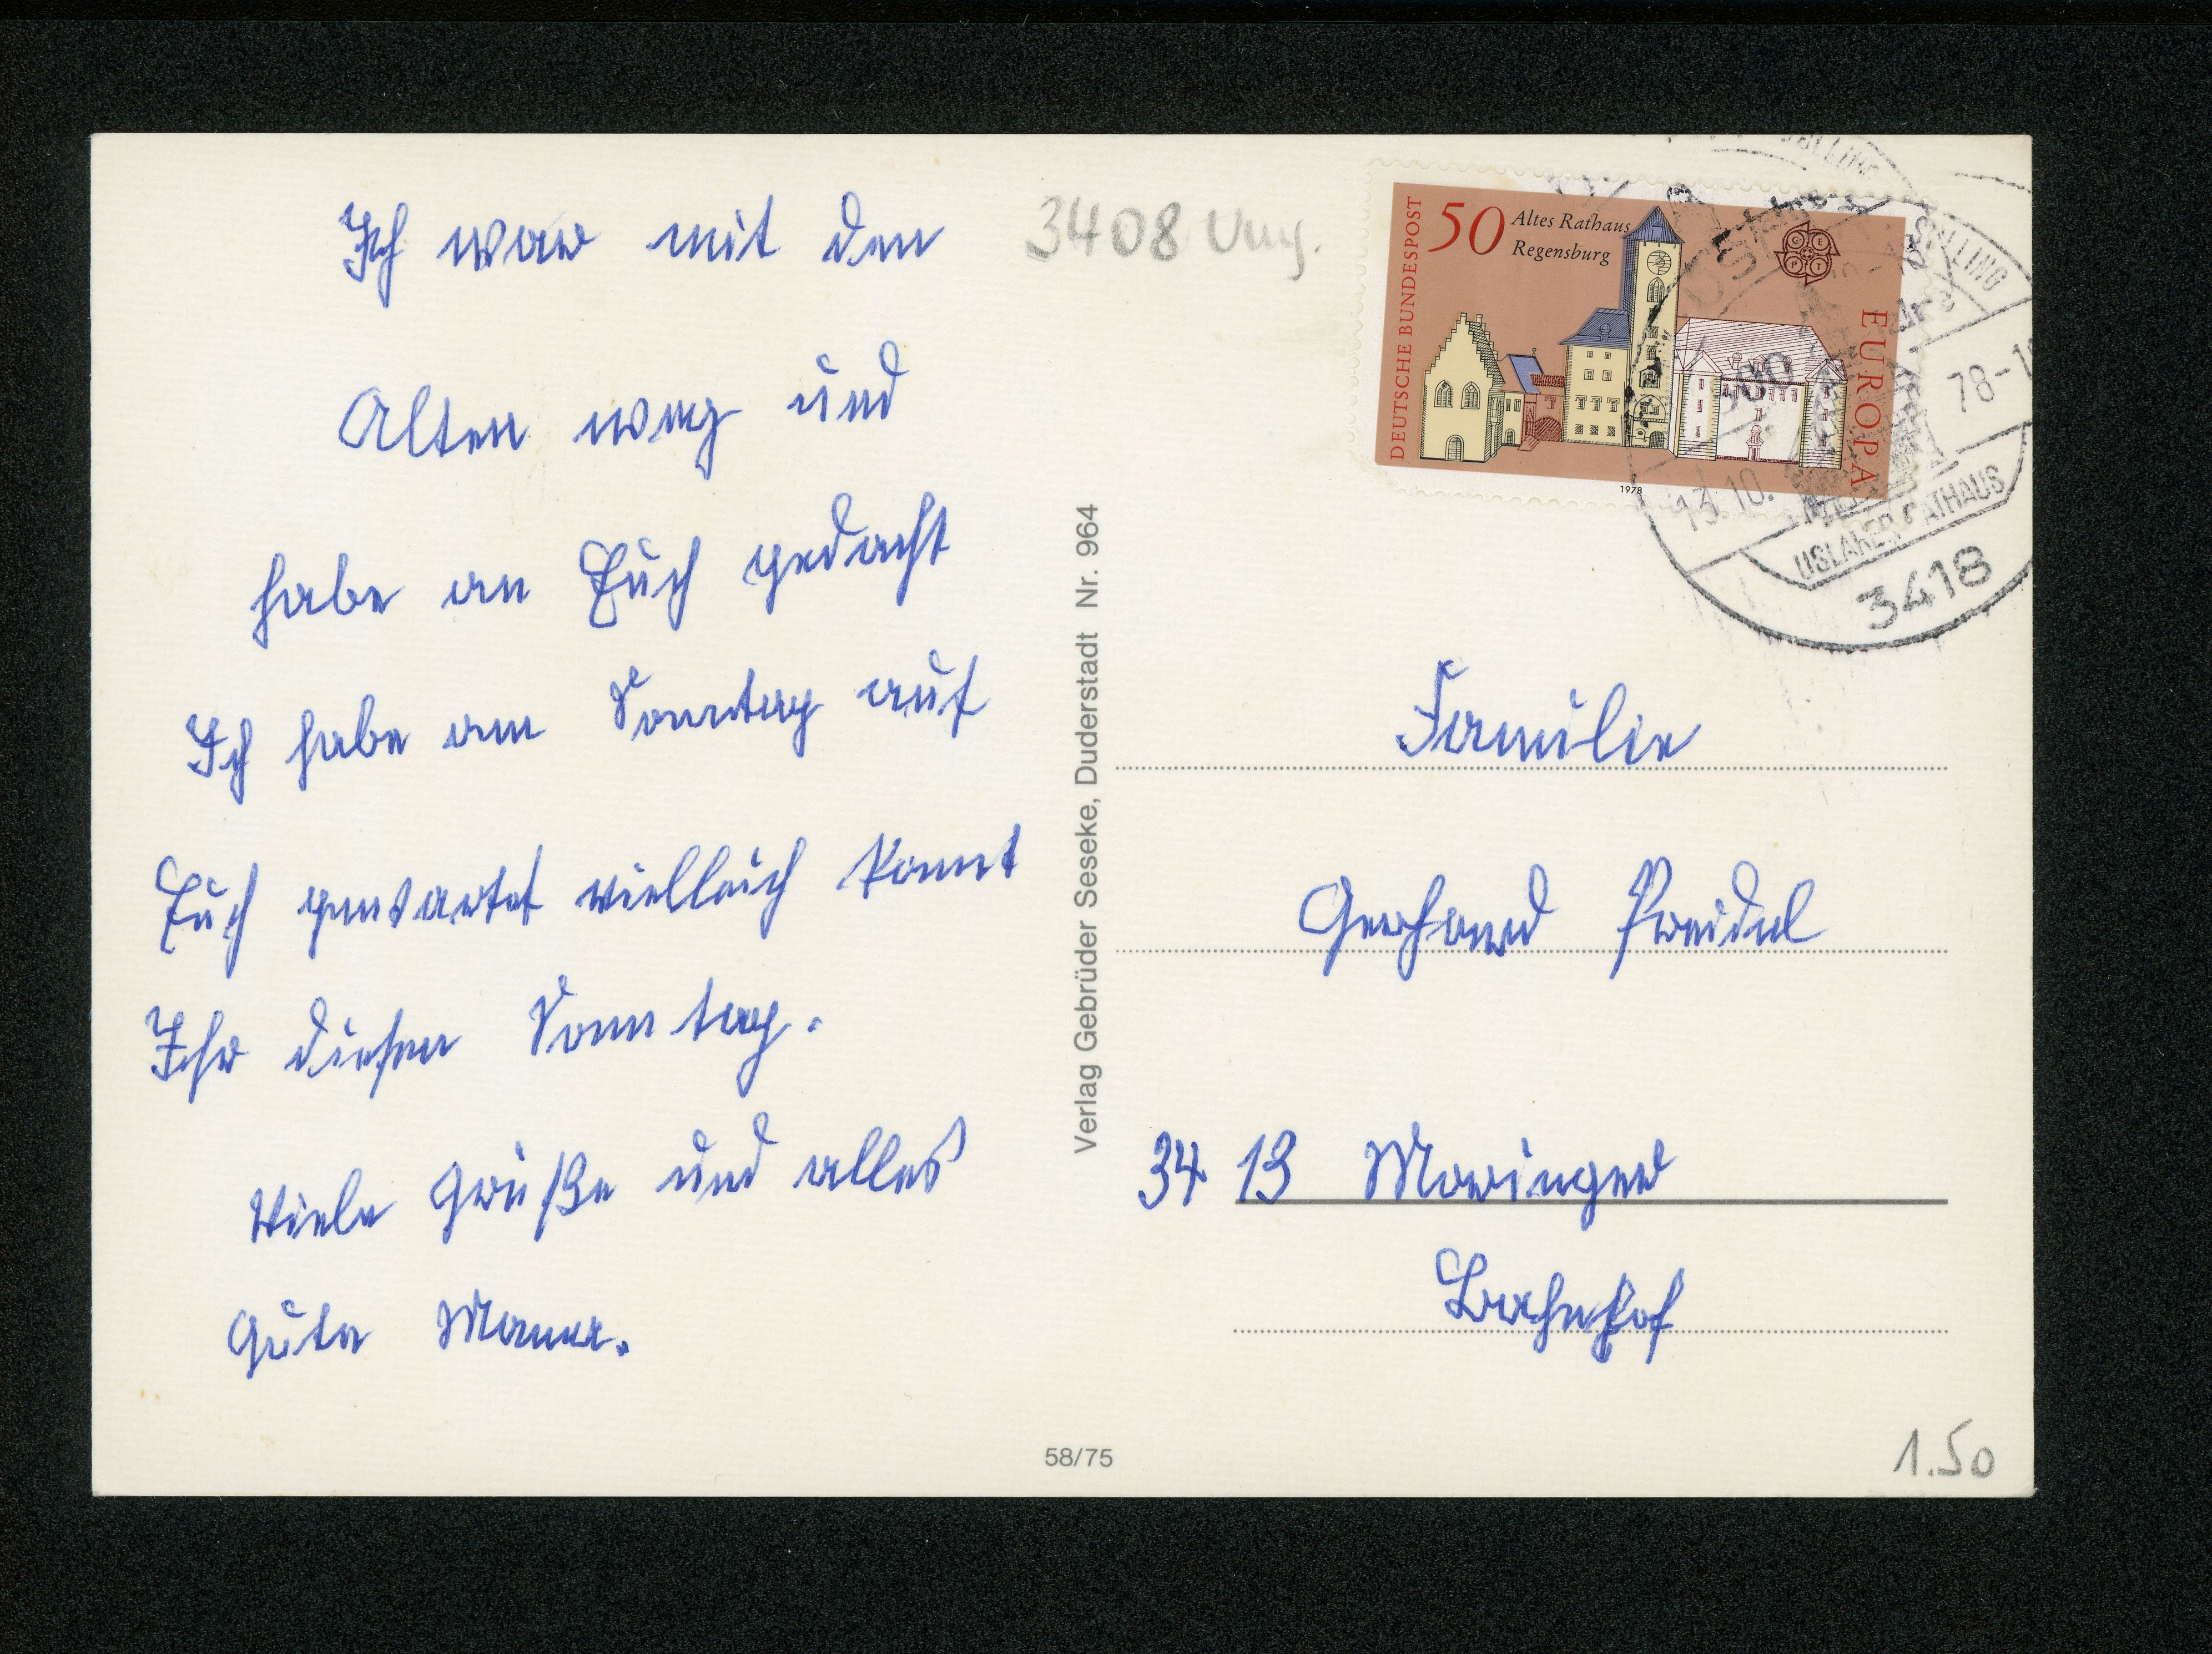 Ich war mit den
Alten weg und
habe an Euch gedacht
Ich habe am Sonntag auf
Euch gewartet vielleich kommt
Ihr diesen Sonntag.
Viele Grüße und alles
Gute Mama.
3408
Verlag Gebrüder Seseke, Duderstadt Nr. 964
58/75
DEUTSCHE BUNDESPOST
50 Altes Rathaus
Regensburg
CEPT
EUROPA
1978
SOLLING
13.10.78-1
USLARER RATHAUS
3418
Familie
Gerhard Preidel
34 13 Moringen
Bahnhof
1.50